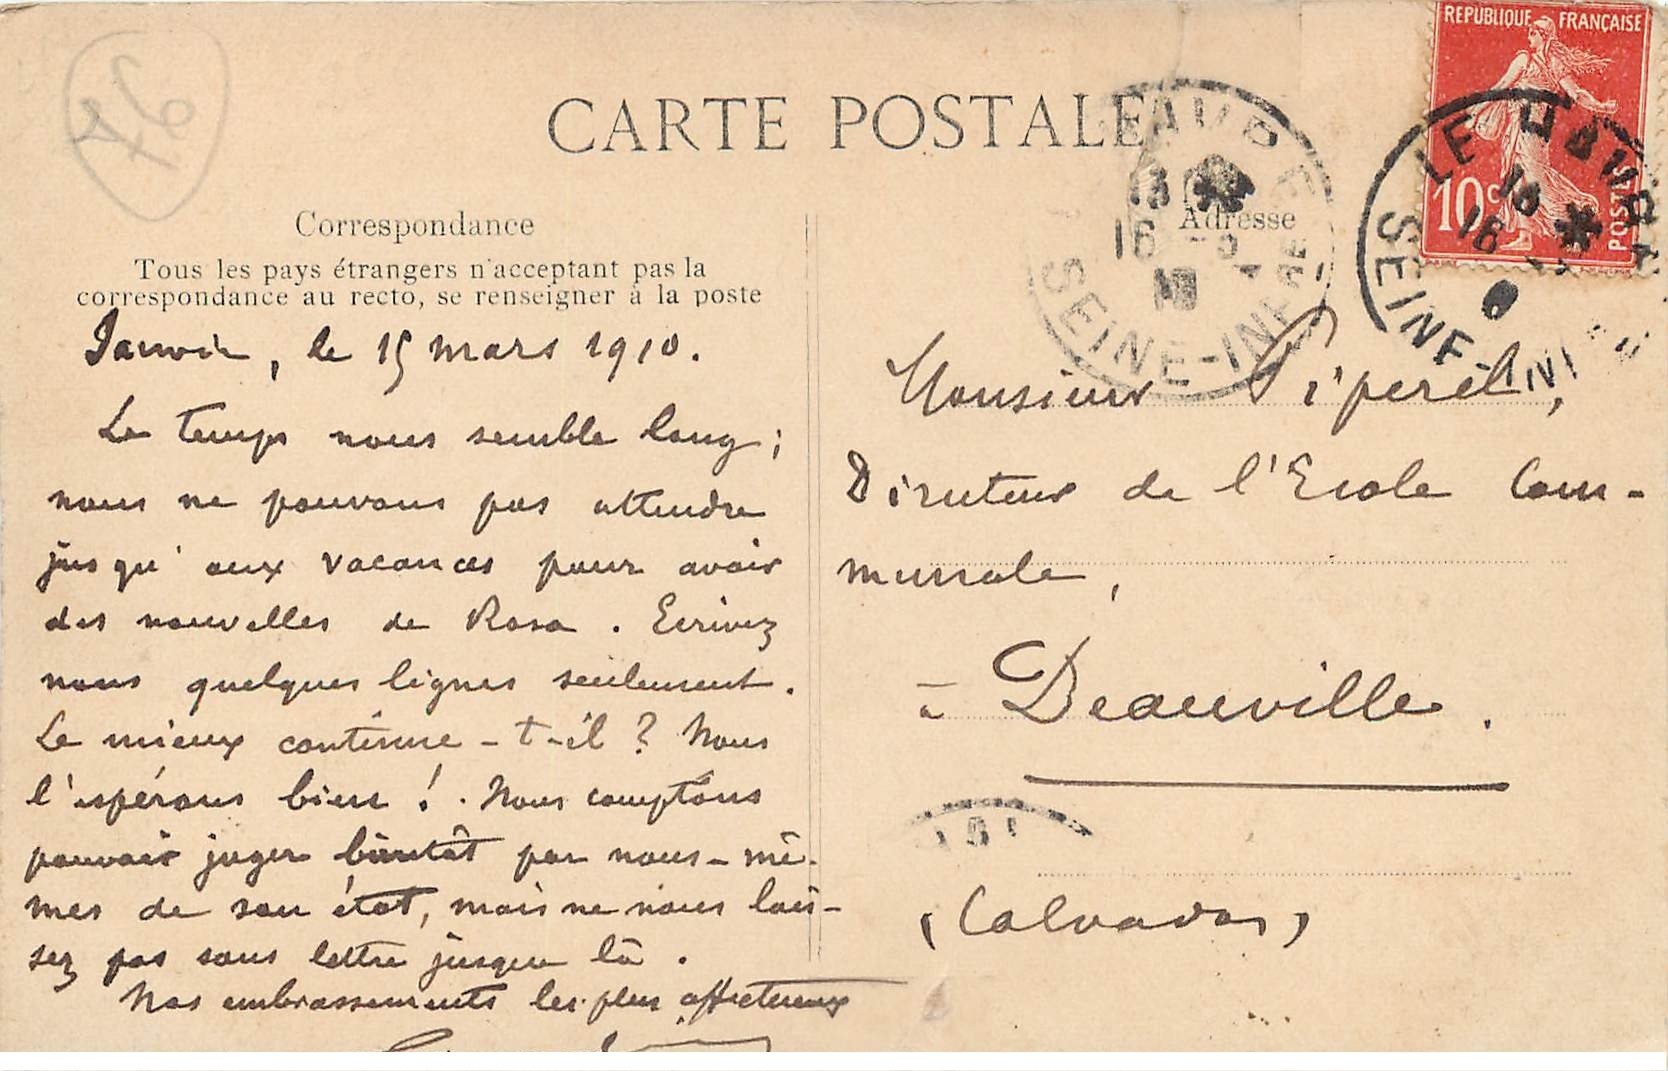 REPUBLIQUE FRANÇAISE
10c
POSTES
CARTE POSTALE
LE HAVRE
SEINE-INF
16
SEINE-INFRE
16
Correspondance
Adresse
Tous les pays étrangers n'acceptant pas la
correspondance au recto, se renseigner à la poste
Janvier, le 15 mars 1910.
Le temps nous semble long ;
nous ne pouvons pas attendre
jusqu'aux vacances pour avoir
des nouvelles de Rosa. Ecrivez
nous quelques lignes seulement.
Le mieux continue-t-il ? Nous
l'espérons bien ! . Nous comptons
pouvoir juger bientôt par nous-mê-
mes de son état, mais ne nous lais-
sez pas sans lettre jusque là.
Nos embrassements les plus affectueux
Monsieur Piperel,
Directeur de l'Ecole Com-
munale,
à Deauville.
(Calvados)